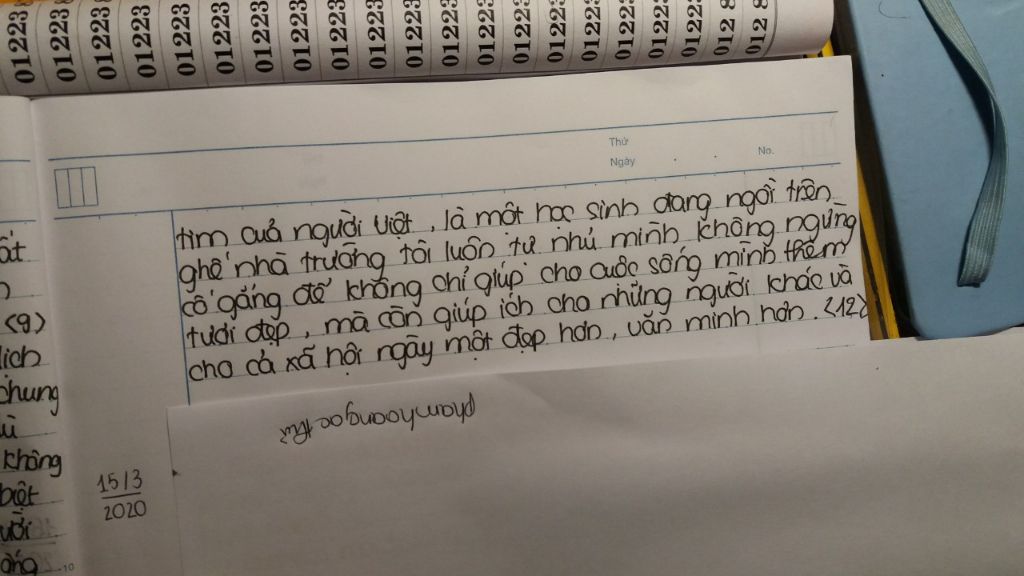 01223 01223 01223 01223 01223 01223 01223 01223 01223 01223 01223 01223 01223 01223 01223 01223 01223 01223 012
Thứ
Ngày . . No.
tim của người Việt, là một học sinh đang ngồi trên
ghế nhà trường tôi luôn tự nhủ mình không ngừng
cố gắng để không chỉ giúp cho cuộc sống mình thêm
tươi đẹp, mà còn giúp ích cho những người khác và
cho cả xã hội ngày một đẹp hơn, văn minh hơn. <12>
<9>
lịch
chung
không
biệt
15/3
2020
10